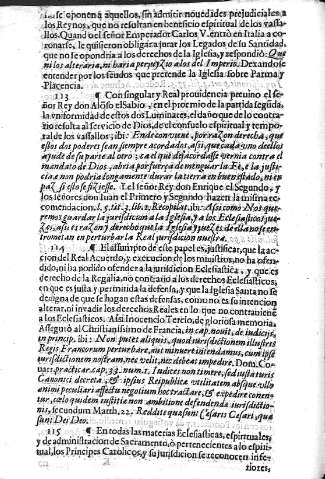 se oponen à aquellos, sin admitir nouedades prejudiciales à
los Reynos, que ni resultan en beneficio espiritual de los vassa-
llos. Quando el señor Emperador Carlos V. entrò en Italia a co-
ronarse, le quisieron obligar à jurar los Legados de su Santidad,
que no se opondria a los derechos de la Iglesia, y respondiò: Que
ni los alteraria, ni haria perjuyzio a los del Imperio. Dexandose
entender por los feudos que pretende la Iglesia sobre Parma y
Placencia.
113 ¶ Con singular y Real prouidencia preuino el se-
ñor Rey don Alõso el Sabio, en el proemio de la partida segũda,
la vniformidad de estos dos Luminares, el daño que de lo contra-
rio resulta al seruicio de Dios, de el consuelo espiritual y tempo-
ral de los vassallos; ibi: Ende conuiene, por razon derecha, que
estos dos poderes sean siempre acordados, assi, que cada vno dellos
ayude de su parte al otro: ca el que desacordasse vernia contra el
mandato de Dios, abria por fuerça de menguar la Fè, e la justi-
cia e non podria longamente durar la tierra en buen estado, ni en
paz, si esto se fiziesse. Y el señor Rey don Enrique el Segundo, y
los señores don Iuan el Primero y Segundo hazen la misma re-
comendacion. l. 3. tit. 1. lib. 4. Recopilat. ibi: Assi como Nos que-
remos guardar la jurisdiccion a la Iglesia, y a los Eclesiasticos jue-
zes, assi es razon y derecho que la Iglesia y juezes de ella no se en-
trometan en perturbar la Real jurisdiccion nuestra.
114 ¶ El assumpto de esto papel es, justificar, que la ac-
cion del Real Acuerdo, y execucion de los ministros, no ha ofen-
dido, ni ha podido ofender a la jurisdiccion Eclesiastica, y que es
derecho de la Regalia, no contrario al os derechos Eclesiasticos,
en que es justa y permitida la defensa, y que la Iglesia Santa no se
designa de que se hagan estas defensas, como no es su intencion
alterar, ni inuadir los derechos Reales en lo que no contrauienẽ
a los Eclesiasticos. Assi Inocencio Tercio, de gloriosa memoria,
Assegurò al Christianissimo de Francia, in cap. nouit, de iudicijs,
in princip. ibi: Non putet aliquis, quod iurisdictionem illustris
Regis Francorum perturbare, aut minuere intendamus, cum ipse
iurisdictionem nostram, nec velit, nec debeat impedire. Dom. Co-
uar. practicar. cap. 33. num. 1. Iudices non timere, sed iusta iuris
Canonici decreta, & ipsius Reipublicæ vtilitatem absque vllo
animi peculiari affectu negotium hoc tractare, & expedire conen-
tur, zelo quidem iustitiæ non ambitione defendenda iurisdictio-
nis, secundum Matth. 22. Reddite quæ sunt Cæsaris Cesari, quæ
sunt Dei Deo.
115 ¶ En todas las materias Eclesiasticas, espirituales,
y de administracion de Sacramento, ò pertenecientes a lo espiri-
tual, los Principes Catolicos, y su jurisdiccion se reconocen infe-
riores,